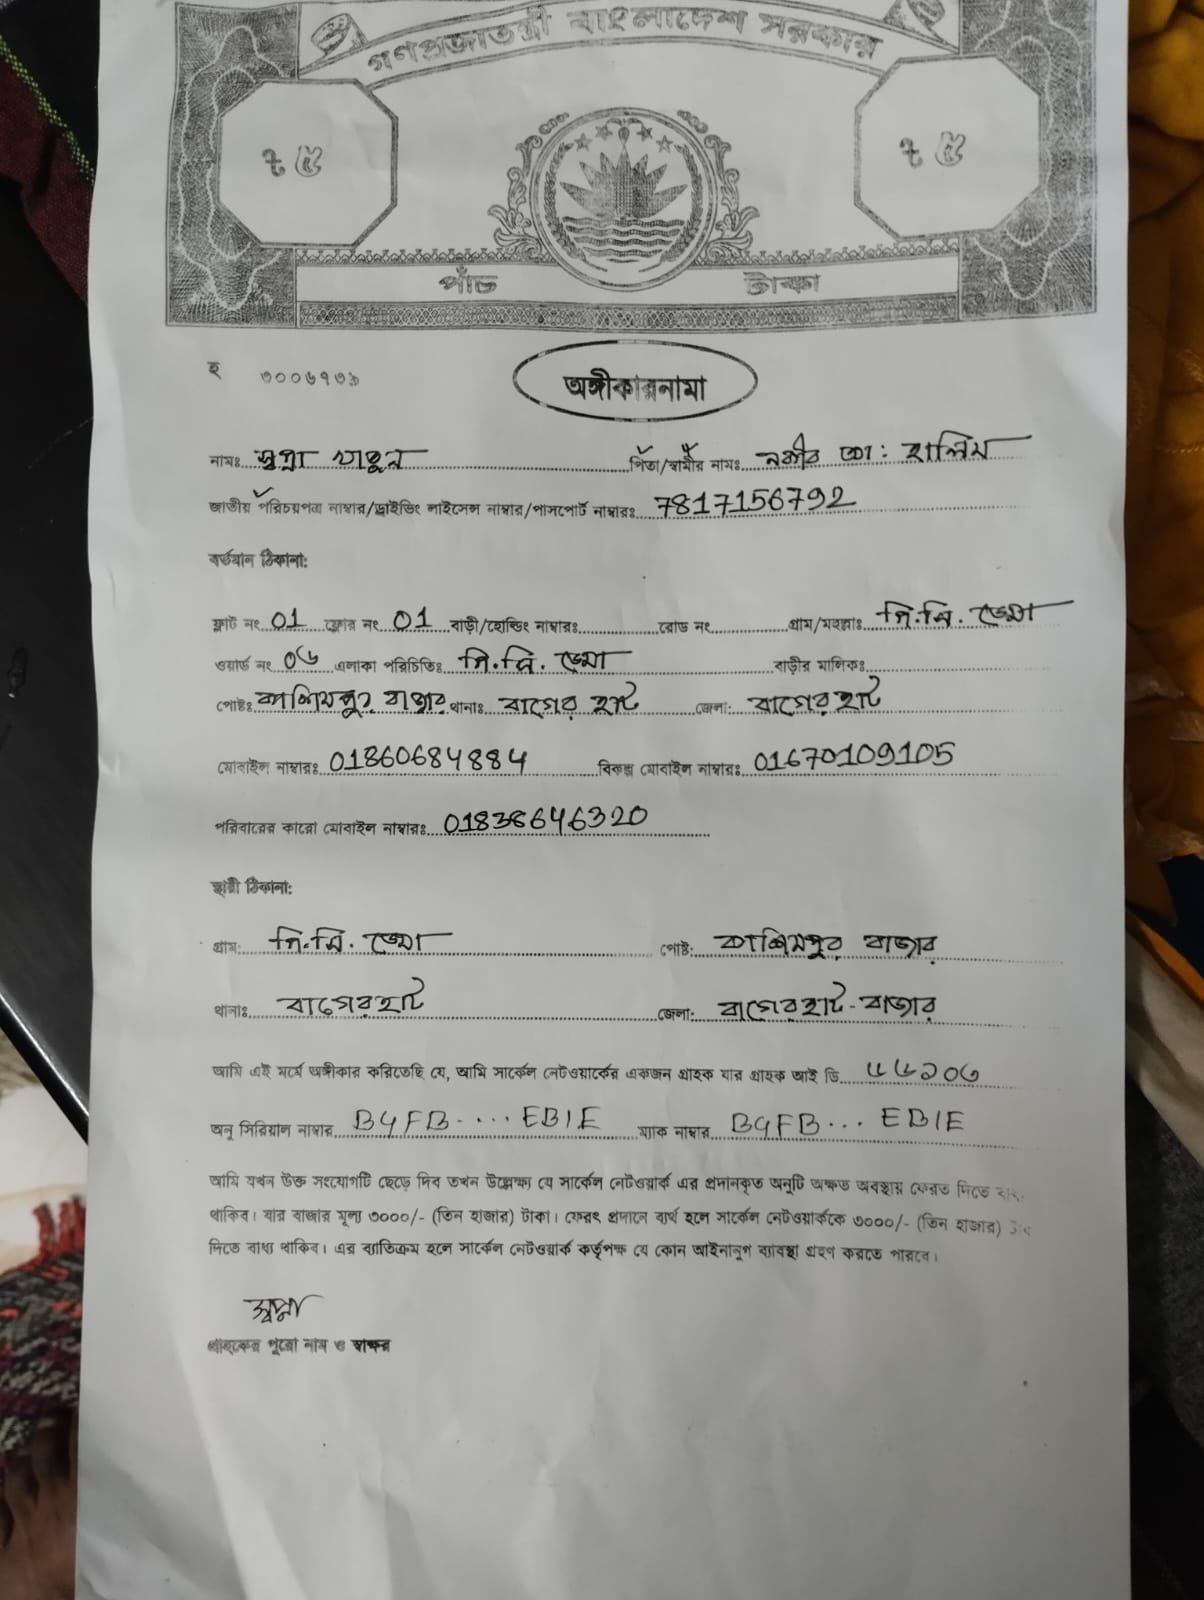 গণপ্রজাতন্ত্রী বাংলাদেশ সরকার
৳ ৫ ৳ ৫
পাঁচ টাকা
হ ৩০০৬৭৩৯
অঙ্গীকারনামা
নামঃ স্বপ্না খাতুন পিতা/স্বামীর নামঃ নকীব মো: হালিম
জাতীয় পরিচয়পত্র নাম্বার/ড্রাইভিং লাইসেন্স নাম্বার/পাসপোর্ট নাম্বারঃ 7817156792
বর্তমান ঠিকানা:
ফ্লাট নং 01 ফ্লোর নং 01 বাড়ী/হোল্ডিং নাম্বারঃ রোড নং গ্রাম/মহল্লাঃ পি.সি. ডেমা
ওয়ার্ড নং ০৬ এলাকা পরিচিতিঃ পি.সি. ডেমা বাড়ীর মালিকঃ
পোষ্টঃ কাশিমপুর বাজার থানাঃ বাগের হাট জেলা: বাগেরহাট
মোবাইল নাম্বারঃ 01860684884 বিকল্প মোবাইল নাম্বারঃ 01670109105
পরিবারের কারো মোবাইল নাম্বারঃ 01838646320
স্থায়ী ঠিকানা:
গ্রাম: পি.সি. ডেমা পোষ্ট: কাশিমপুর বাজার
থানাঃ বাগেরহাট জেলা: বাগেরহাট-বাজার
আমি এই মর্মে অঙ্গীকার করিতেছি যে, আমি সার্কেল নেটওয়ার্কের একজন গ্রাহক যার গ্রাহক আই ডি
অনু সিরিয়াল নাম্বার B4FB....EB1E ম্যাক নাম্বার B4FB... EB1E
আমি যখন উক্ত সংযোগটি ছেড়ে দিব তখন উল্লেক্ষ্য যে সার্কেল নেটওয়ার্ক এর প্রদানকৃত অনুটি অক্ষত অবস্থায় ফেরত দিতে
থাকিব। যার বাজার মূল্য ৩০০০/- (তিন হাজার) টাকা। ফেরৎ প্রদানে ব্যর্থ হলে সার্কেল নেটওয়ার্ককে ৩০০০/- (তিন হাজার)
দিতে বাধ্য থাকিব। এর ব্যতিক্রম হলে সার্কেল নেটওয়ার্ক কর্তৃপক্ষ যে কোন আইনানুগ ব্যাবস্থা গ্রহণ করতে পারবে।
স্বপ্না
গ্রাহকের পুরো নাম ও স্বাক্ষর